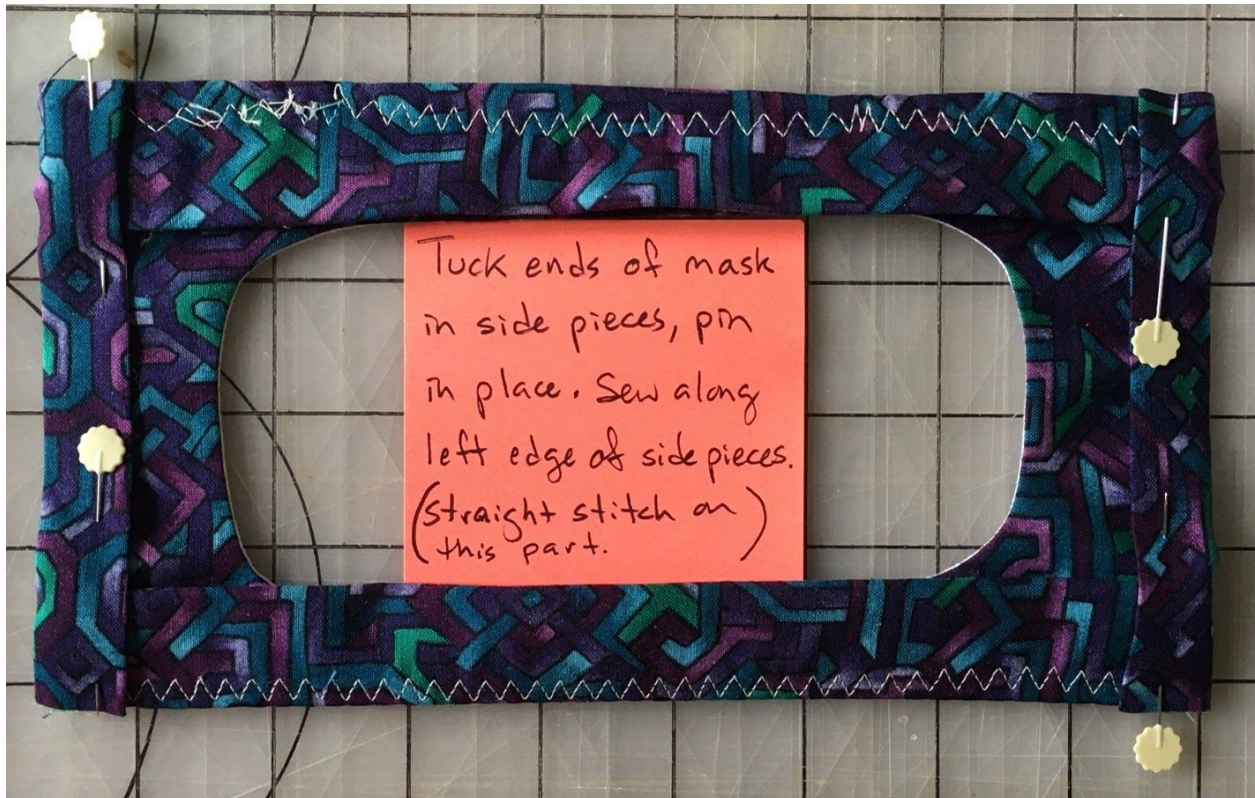 Tuck ends of mask
in side pieces, pin
in place. Sew along
left edge of side pieces.
(straight stitch on
this part. )